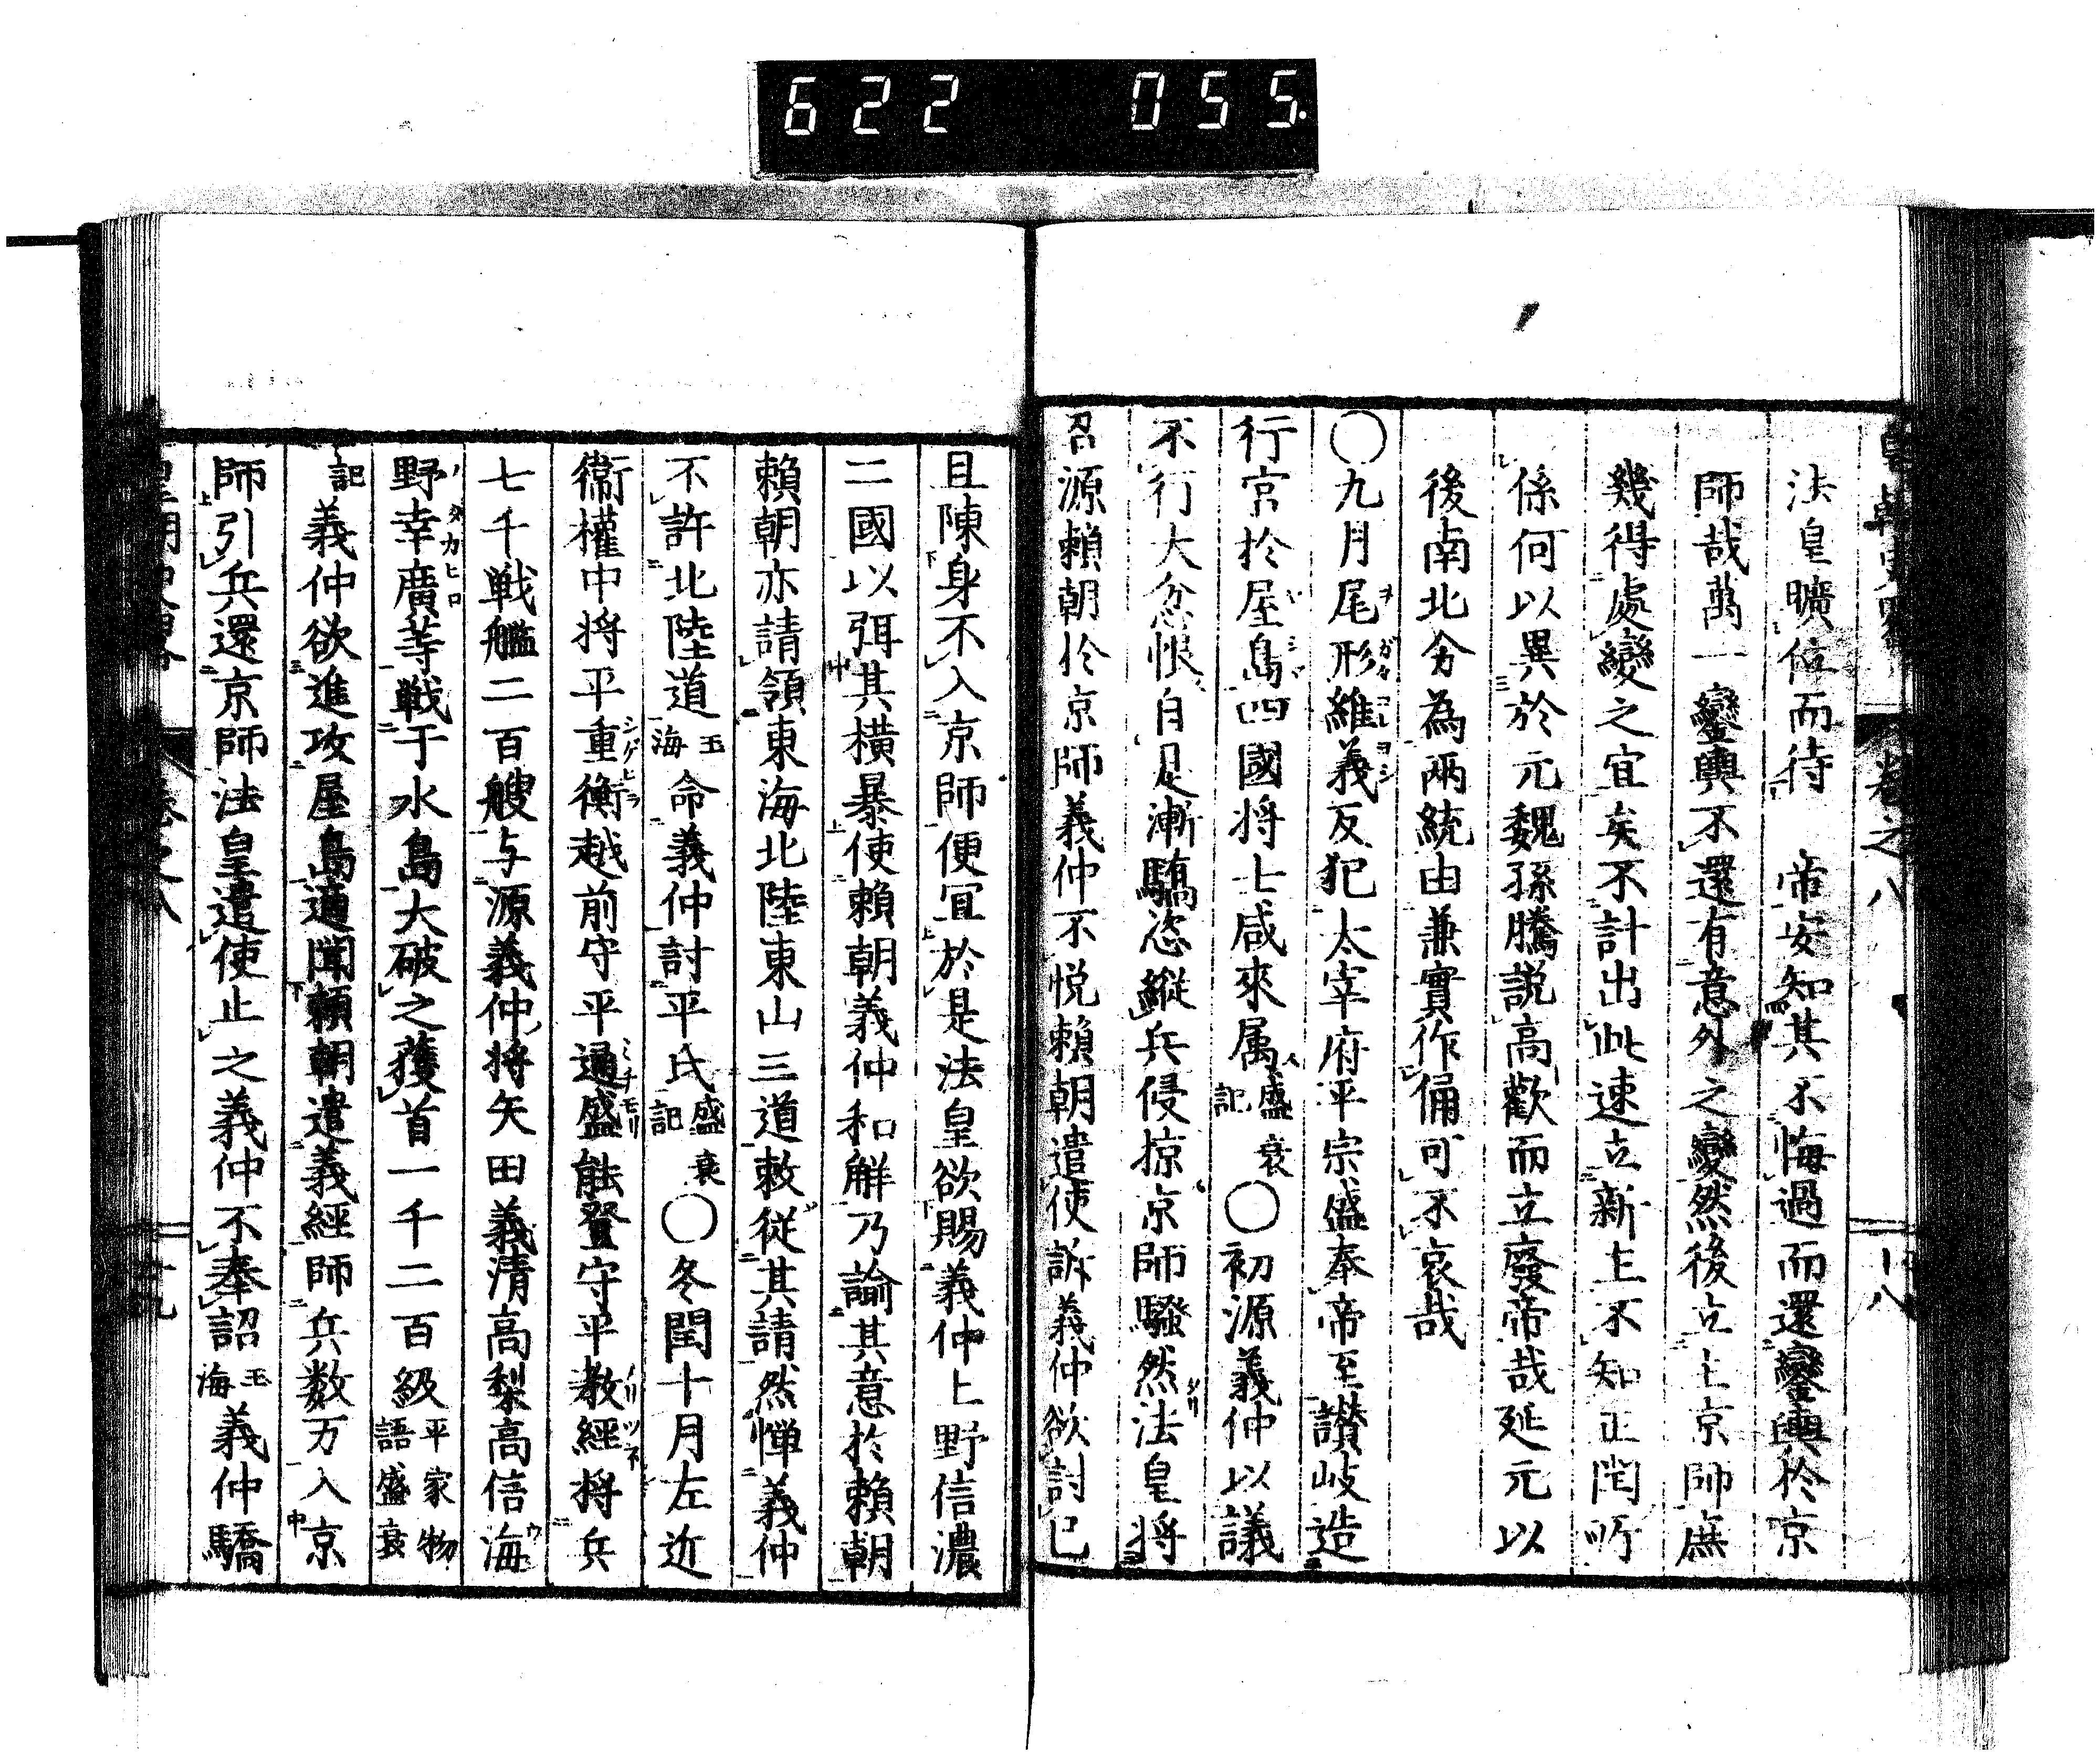 622 055.
卷之八
十八
法皇曠位而待　帝安知其不悔過而還鑾輿於京
師哉萬一鑾輿不還有意外之變然後立主京師庶
幾得處變之宜矣不計出此速立新主不知正閏所
係何以異於元魏孫騰説高歡而立廢帝哉延元以
後南北分為兩統由兼實作俑可不哀哉
〇九月尾形維義反犯太宰府平宗盛奉帝至讃岐造
行宮於屋島四國将士咸來属盛衰記〇初源義仲以議
不行大忿恨自是漸驕恣縱兵侵掠京師騷然法皇将
召源頼朝於京師義仲不悦頼朝遣使訴義仲欲討己
且陳身不入京師便宜於是法皇欲賜義仲上野信濃
二國以弭其横暴使頼朝義仲和解乃諭其意於頼朝
頼朝亦請領東海北陸東山三道敕從其請然憚義仲
不許北陸道玉海命義仲討平氏盛衰記〇冬閏十月左近
衞權中将平重衡越前守平通盛能登守平教經将兵
七千戦艦二百艘与源義仲将矢田義清高梨高信海
野幸廣等戦于水島大破之獲首一千二百級平家物語盛衰
記義仲欲進攻屋島適聞頼朝遣義經師兵数万入京
師引兵還京師法皇遣使止之義仲不奉詔玉海義仲驕